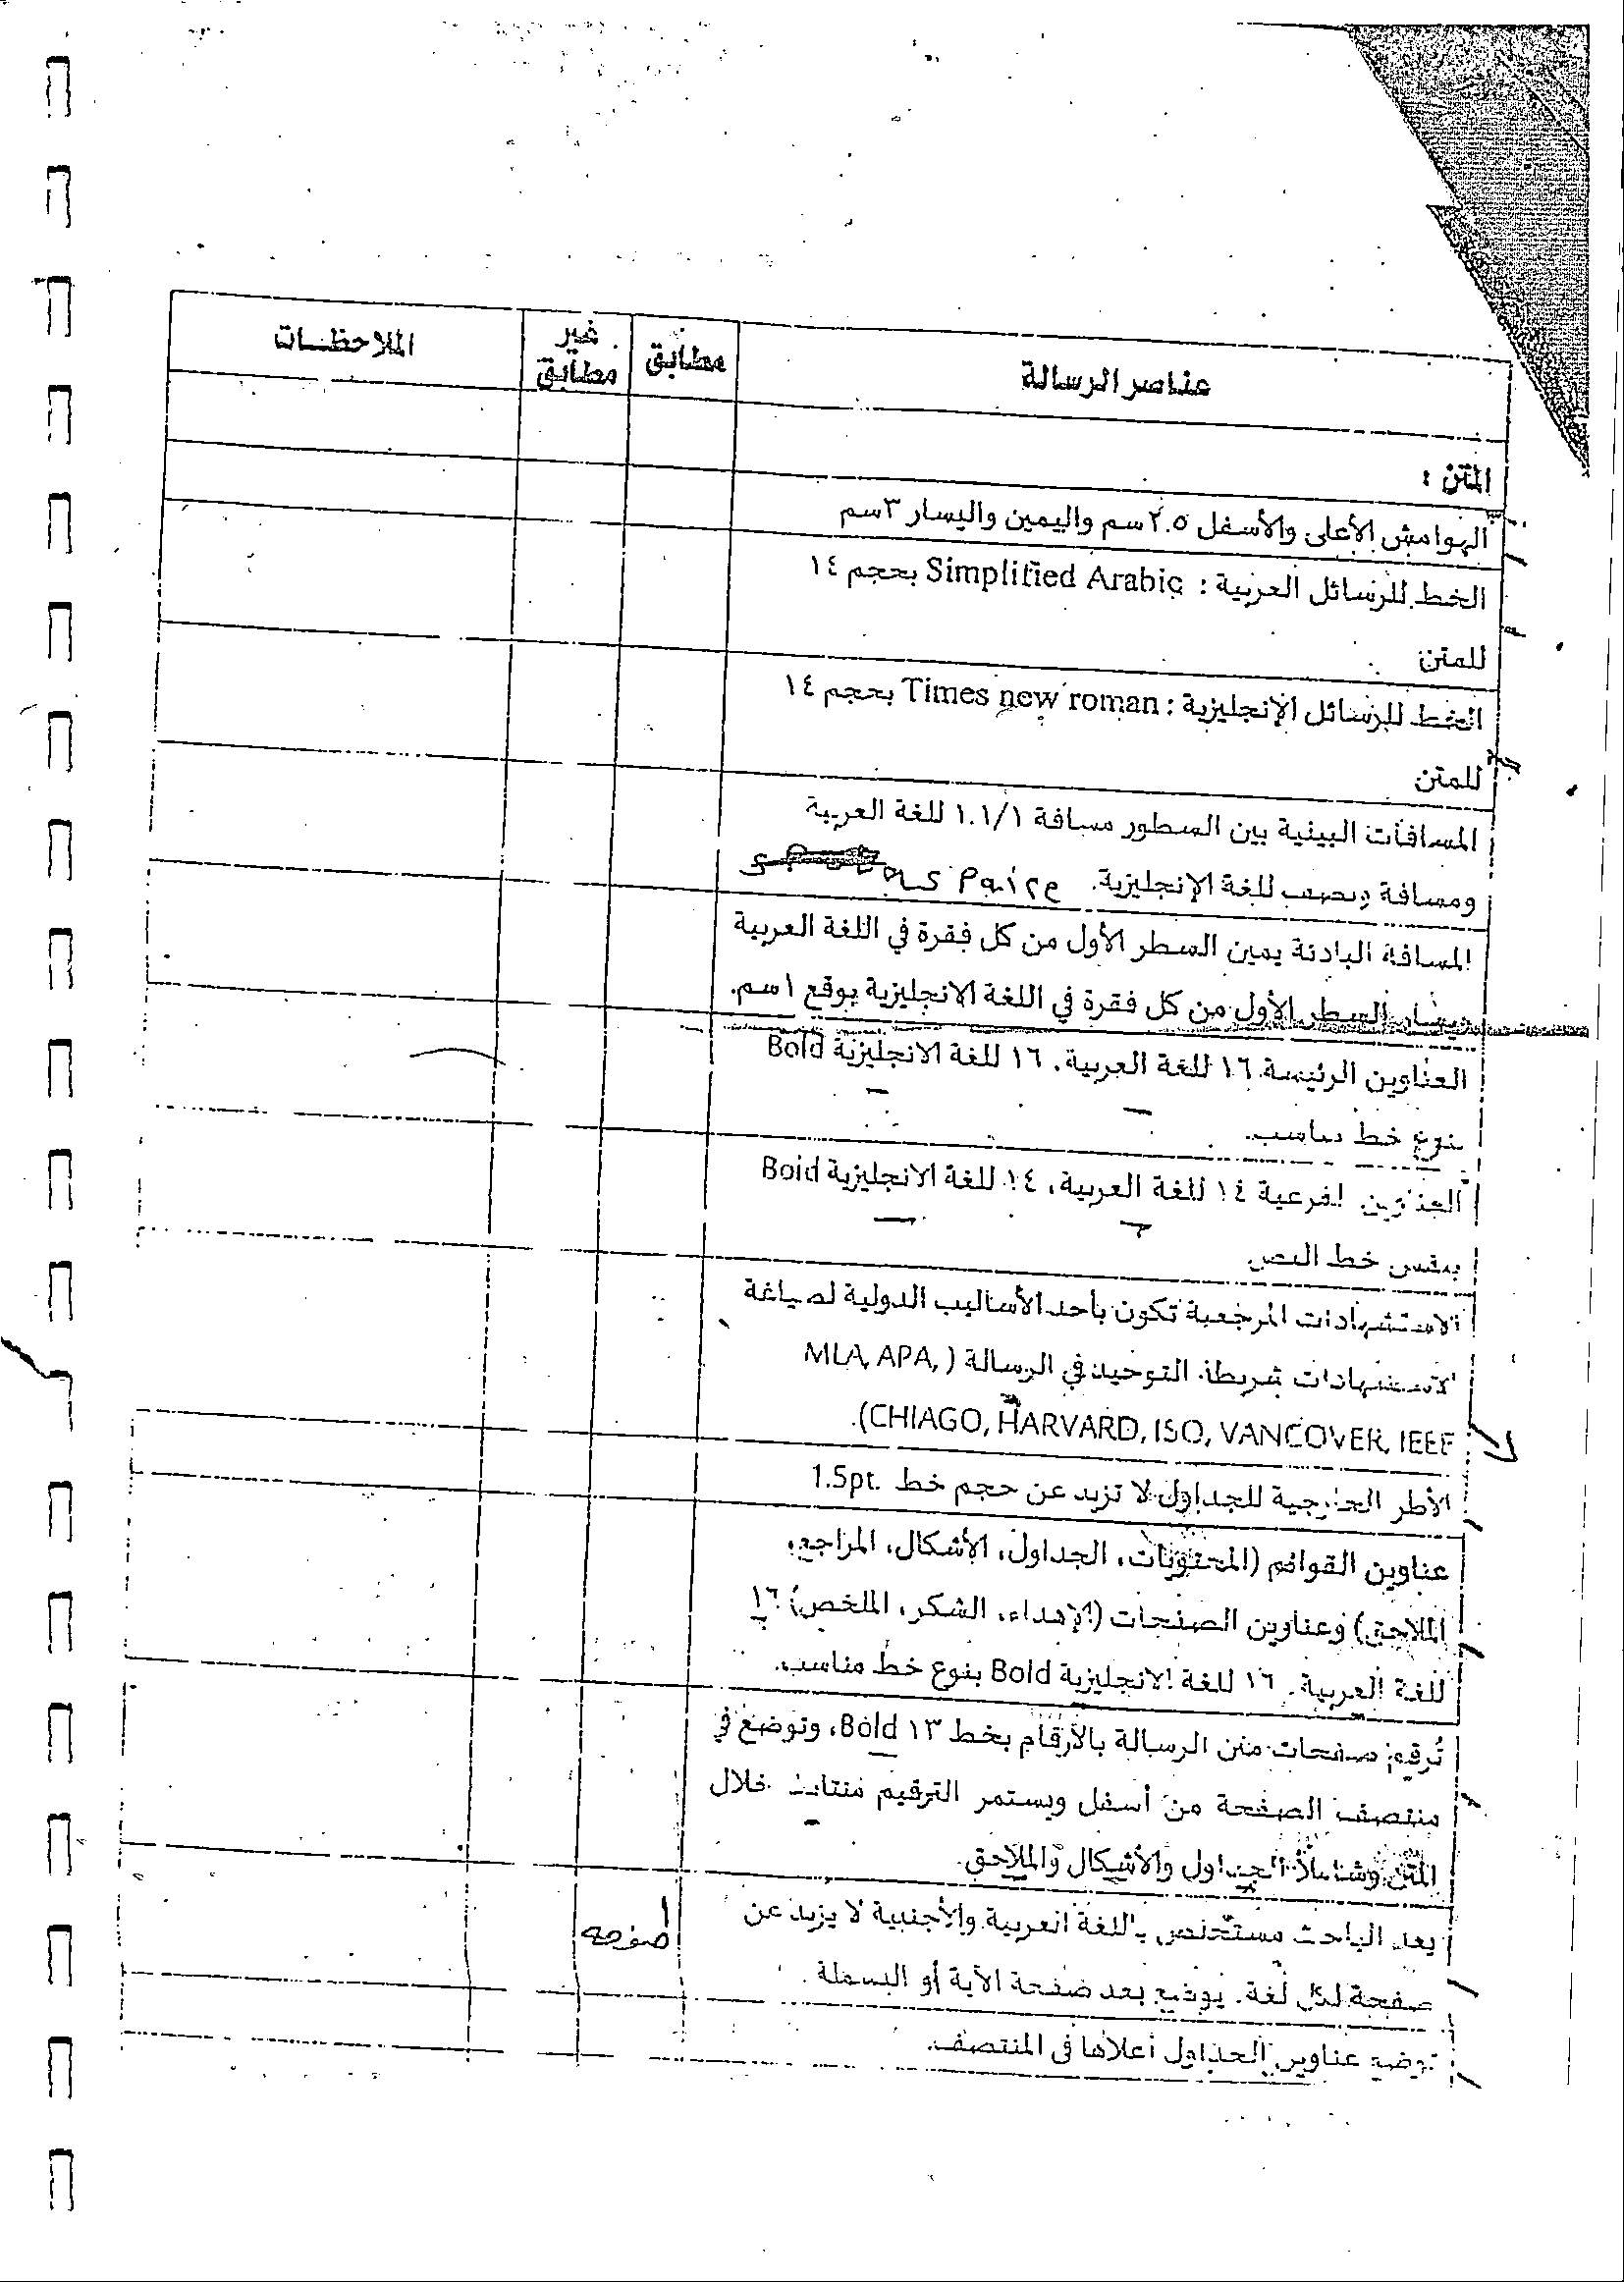 عناصر الرسالة
مطابق
غير مطابق
الملاحظات
المتن :
الهوامش الأعلى والأسفل ٢.٥سم واليمين واليسار ٣سم
الخط للرسائل العربية : Simplified Arabic بحجم ١٤
للمتن
الخط للرسائل الإنجليزية : Times new roman بحجم ١٤
للمتن
المسافات البينية بين السطور مسافة ١.١/١ للغة العربية
ومسافة ونصف للغة الإنجليزية.
المسافة البادئة يمين السطر الأول من كل فقرة في اللغة العربية
ويسار السطر الأول من كل فقرة في اللغة الانجليزية بوقع ١سم.
العناوين الرئيسة ١٦ للغة العربية، ١٦ للغة الانجليزية Bold
بنوع خط مناسب.
العناوين الفرعية ١٤ للغة العربية، ١٤ للغة الانجليزية Bold
بنفس خط النص
الاستشهادات المرجعية تكون بأحد الأساليب الدولية لصياغة
الاستشهادات شريطة التوحيد في الرسالة (MLA, APA,
CHIAGO, HARVARD, ISO, VANCOVER, IEEE).
الأطر الخارجية للجداول لا تزيد عن حجم خط 1.5pt.
عناوين القوائم (المحتويات، الجداول، الأشكال، المراجع،
الملاحق) وعناوين الصفحات (الإهداء، الشكر، الملخص) ١٦
للغة العربية. ١٦ للغة الانجليزية Bold بنوع خط مناسب.
تُرقم صفحات متن الرسالة بالأرقام بخط ١٣ Bold، وتوضع في
منتصف الصفحة من أسفل ويستمر الترقيم خلال
المتن وشاملاً الجداول والأشكال والملاحق.
يعد الباحث مستخلص باللغة العربية والأجنبية لا يزيد عن
صفحة لكل لغة. يوضع بعد صفحة الآية أو البسملة.
١ صفحه
توضع عناوين الجداول أعلاها في المنتصف.